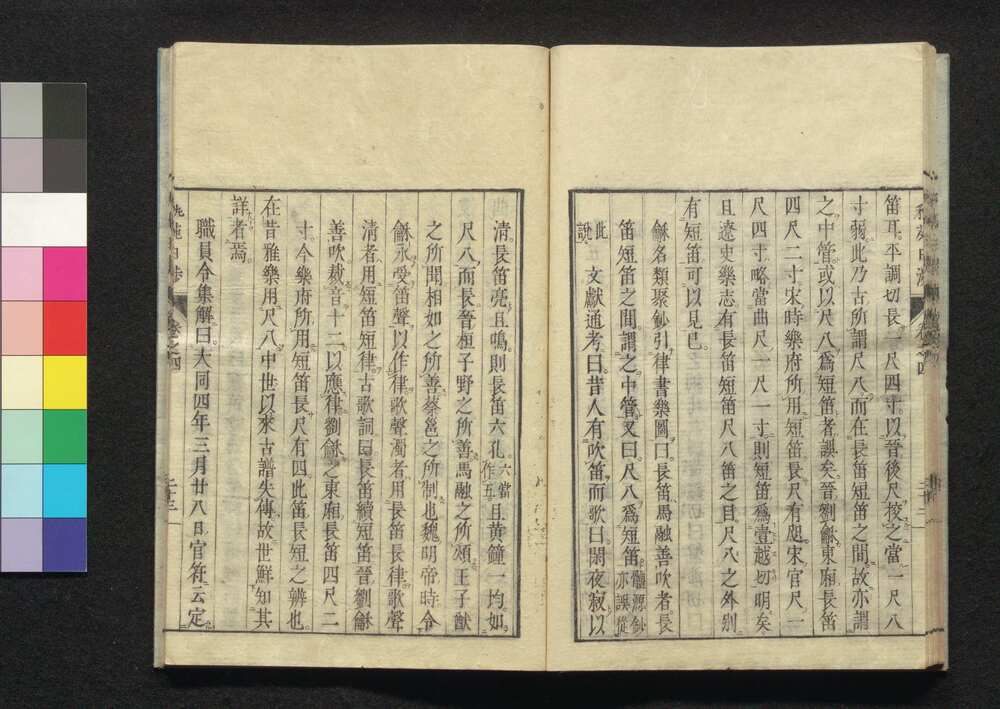 笛耳平調切長一尺四寸以晉後尺挍之當一尺八
寸弱此乃古所謂尺八而在長笛短笛之間故亦謂
之中管或以尺八爲短笛者誤矣晉劉龢東廂長笛
四尺二寸宋時樂府所用短笛長尺有咫宋官尺一
尺四寸略當曲尺一尺一寸則短笛爲壹越切明矣
且遼史樂志有長笛短笛尺八笛之目尺八之外別
有短笛可以見已
龢名類聚鈔引律書樂圖曰長笛馬融善吹者長
笛短笛之間謂之中管又曰尺八爲短笛髓源鈔亦誤從
此說文獻通考曰昔人有吹笛而歌曰閑夜寂以
清長笛亮且鳴則長笛六孔六當作五且黄鐘一均如
尺八而長晉桓子野之所善馬融之所頌王子猷
之所聞相如之所善蔡邕之所制也魏明帝時令
龢永受笛聲以作律歌聲濁者用長笛長律歌聲
清者用短笛短律古歌詞曰長笛續短笛晉劉龢
善吹裁音十二以應律劉龢之東廂長笛四尺二
寸今樂府所用短笛長尺有四此笛長短之辨也
在昔雅樂用尺八中世以來古譜失傳故世鮮知其
詳者焉
職員令集解曰大同四年三月廿八日官符云定
卷之四
二十三